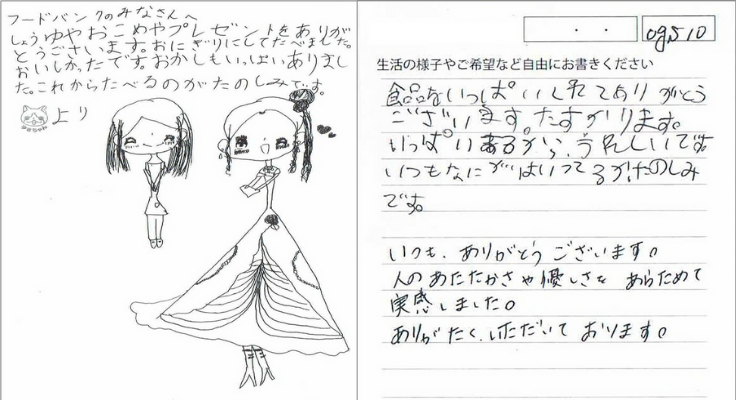 フードバンクのみなさんへ
しょうゆやおこめやプレゼントをありが
とうございます。おにぎりにしてたべました。
おいしかったです。おかしもいっぱいありまし
た。これからたべるのがたのしみです。
より
・ ・
og510
生活の様子やご希望など自由にお書きください
食品をいっぱいくれてありがとう
ございます。たすかります。
いっぱいあるから、うれしいです。
いつもなにがはいってるかたのしみ
です。
いつも、ありがとうございます。
人のあたたかさや優しさを あらためて
実感しました。
ありがたく、いただいております。